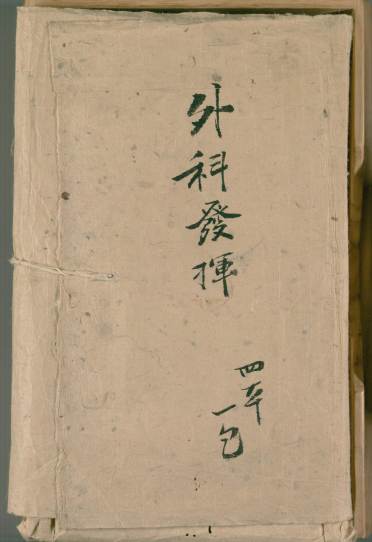 外科發揮
四本
一包